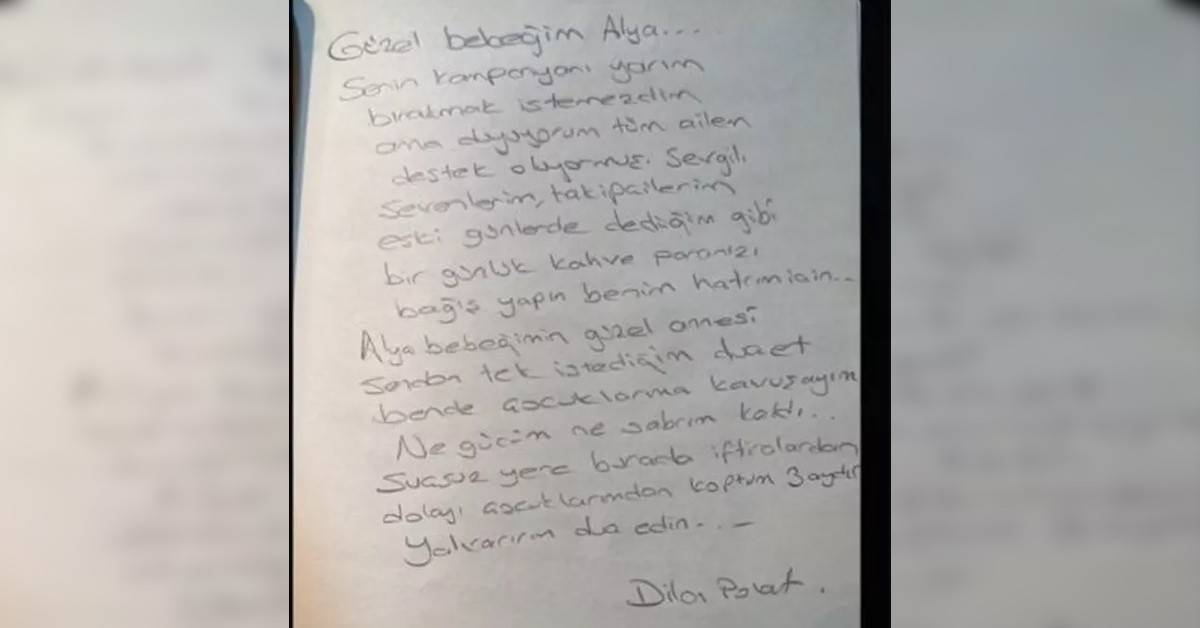 Güzel bebeğim Alya...
Senin kampanyanı yarım
bırakmak istemezdim
ama duyuyorum tüm ailen
destek oluyormuş. Sevgili
sevenlerim, takipçilerim
eski günlerde dediğim gibi
bir günlük kahve paranızı
bağış yapın benim hatrım için..
Alya bebeğimin güzel annesi
senden tek istediğim dua et
bende çocuklarıma kavuşayım
Ne gücüm ne sabrım kaldı...
Suçsuz yere burada iftiralardan
dolayı çocuklarımdan koptum 3 aydır
Yalvarırım dua edin...
Dilan Polat.